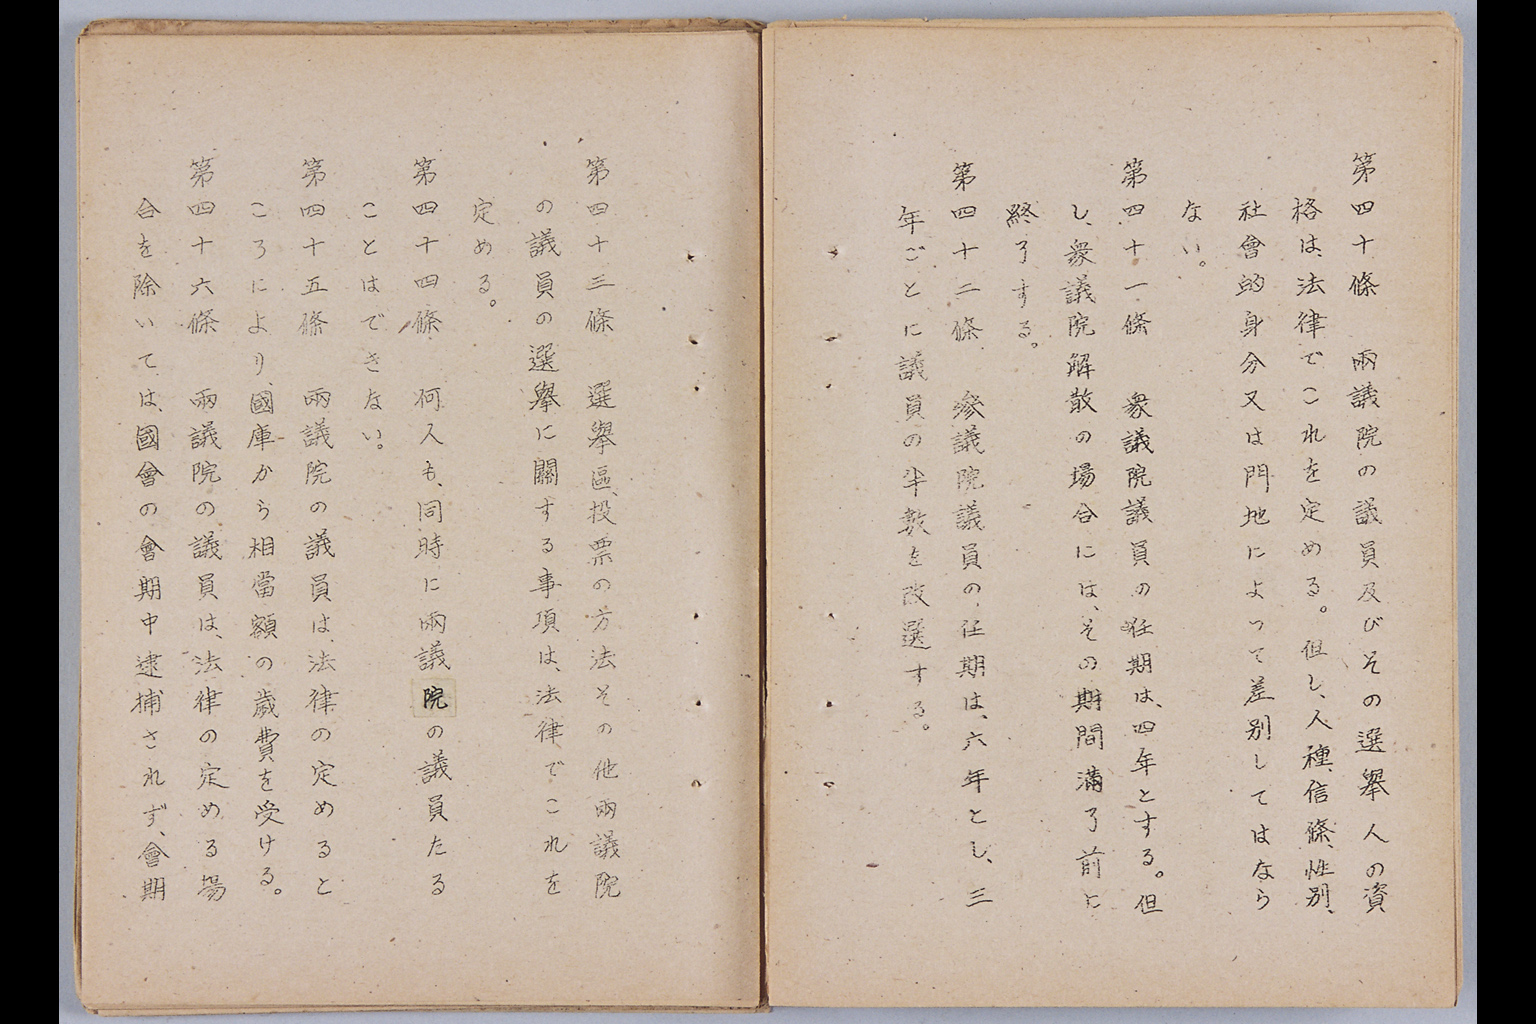 第四十條　兩議院の議員及びその選擧人の資
格は、法律でこれを定める。但し、人種、信條、性別、
社會的身分又は門地によつて差別してはなら
ない。
第四十一條　衆議院議員の任期は、四年とする。但
し、衆議院解散の場合には、その期間滿了前に
終了する。
第四十二條　參議院議員の任期は、六年とし、三
年ごとに議員の半數を改選する。
第四十三條　選擧區、投票の方法その他兩議院
の議員の選擧に關する事項は、法律でこれを
定める。
第四十四條　何人も、同時に兩議院の議員たる
ことはできない。
第四十五條　兩議院の議員は、法律の定めると
ころにより、國庫から相當額の歲費を受ける。
第四十六條　兩議院の議員は、法律の定める場
合を除いては、國會の會期中逮捕されず、會期